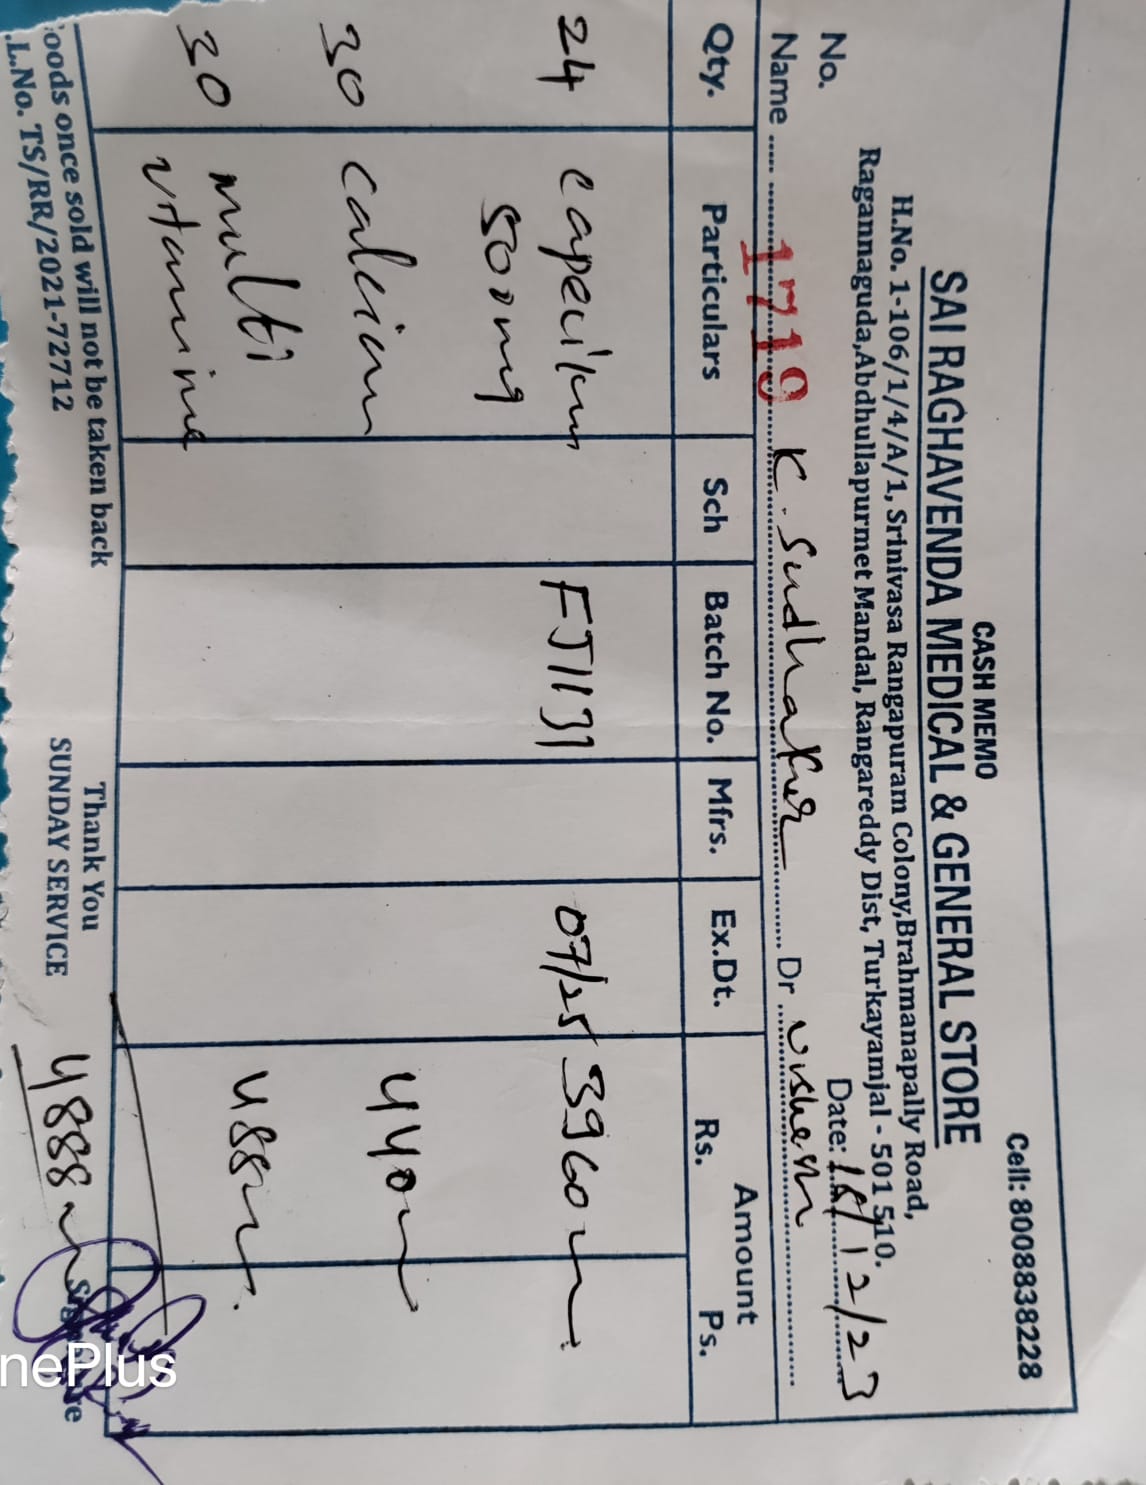 CASH MEMO
Cell: 8008838228
SAI RAGHAVENDA MEDICAL & GENERAL STORE
H.No. 1-106/1/4/A/1, Srinivasa Rangapuram Colony,Brahmanapally Road,
Ragannaguda,Abdhullapurmet Mandal, Rangareddy Dist, Turkayamjal - 501 510.
No. 1710 Date: 16/12/23
Name K. Sudhaker Dr
Qty. Particulars Sch Batch No. Mfrs. Ex.Dt. Amount
Rs. Ps.
24 FJ1131 07/25 3960
500mg
30 calcium 440
30 multi 488
vitamine
oods once sold will not be taken back Thank You
.L.No. TS/RR/2021-72712 SUNDAY SERVICE 4888
nePlus